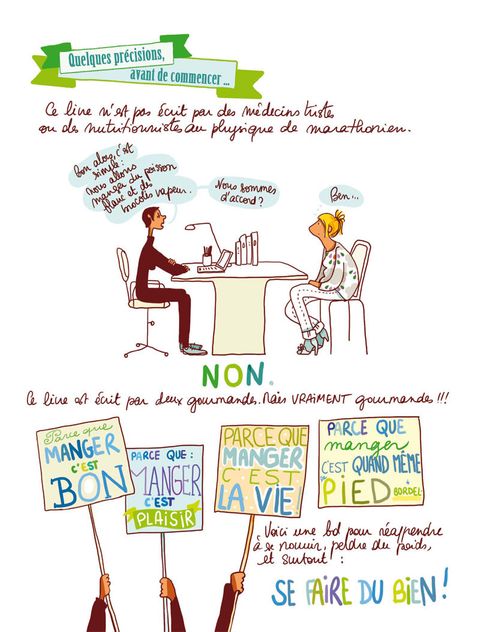 Quelques précisions,
avant de commencer...
Ce livre n'est pas écrit par des médecins tristes
ou des nutritionnistes au physique de marathonien.
Bon alors, c'est
simple:
nous allons
manger du poisson
blanc et des
brocolis vapeur.
Nous sommes
d'accord?
Ben...
NON.
Ce livre est écrit par deux gourmandes. Mais VRAIMENT gourmandes!!!
Parce que
MANGER
c'EST
BON
PARCE QUE:
MANGER
C'EST
PLAISIR
PARCE QUE
MANGER
C'EST
LA VIE!
PARCE QUE
manger
C'EST QUAND MÊME
PIED
BORDEL
Voici une bd pour réapprendre
à se nourrir, perdre du poids,
et surtout:
SE FAIRE DU BIEN!